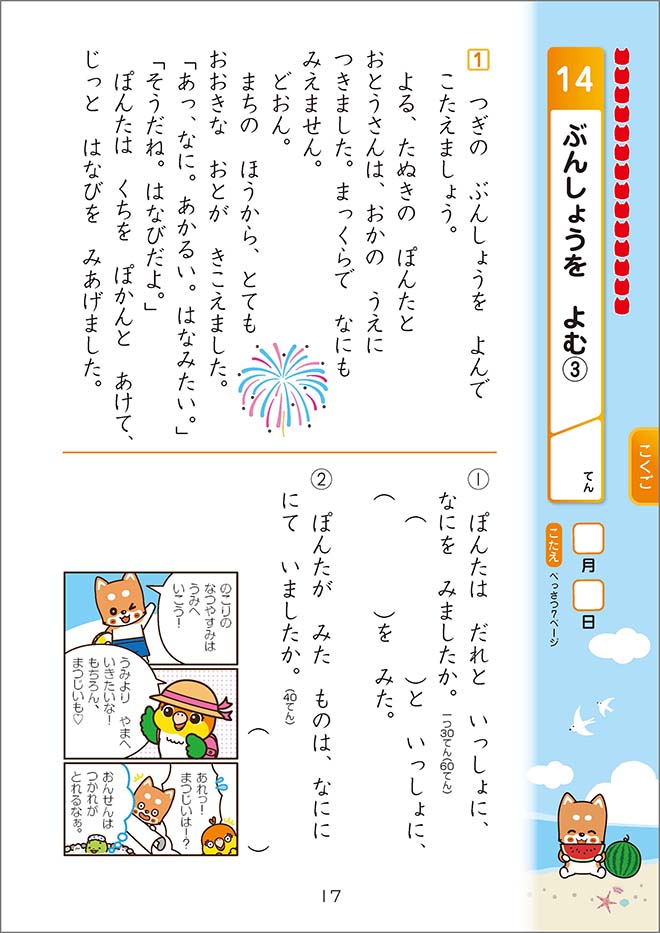 14
ぶんしょうを　よむ③
てん
こくご
月
日
こたえ
べっさつ7ページ
1
つぎの　ぶんしょうを　よんで
こたえましょう。
よる、たぬきの　ぽんたと
おとうさんは、おかの　うえに
つきました。まっくらで　なにも
みえません。
どおん。
まちの　ほうから、とても
おおきな　おとが　きこえました。
「あっ、なに。あかるい。はなみたい。」
「そうだね。はなびだよ。」
ぽんたは　くちを　ぽかんと　あけて、
じっと　はなびを　みあげました。
① ぽんたは　だれと　いっしょに、
なにを　みましたか。一つ30てん(60てん)
(　　　)と　いっしょに、
(　　　)を　みた。
② ぽんたが　みた　ものは、なにに
にて　いましたか。(40てん)
(　　　)
のこりの
なつやすみは
うみへ
いこう!
うみより　やまへ
いきたいな!
もちろん、
まつじいも♡
あれっ!
まつじいは!?
おんせんは
つかれが
とれるなぁ。
17